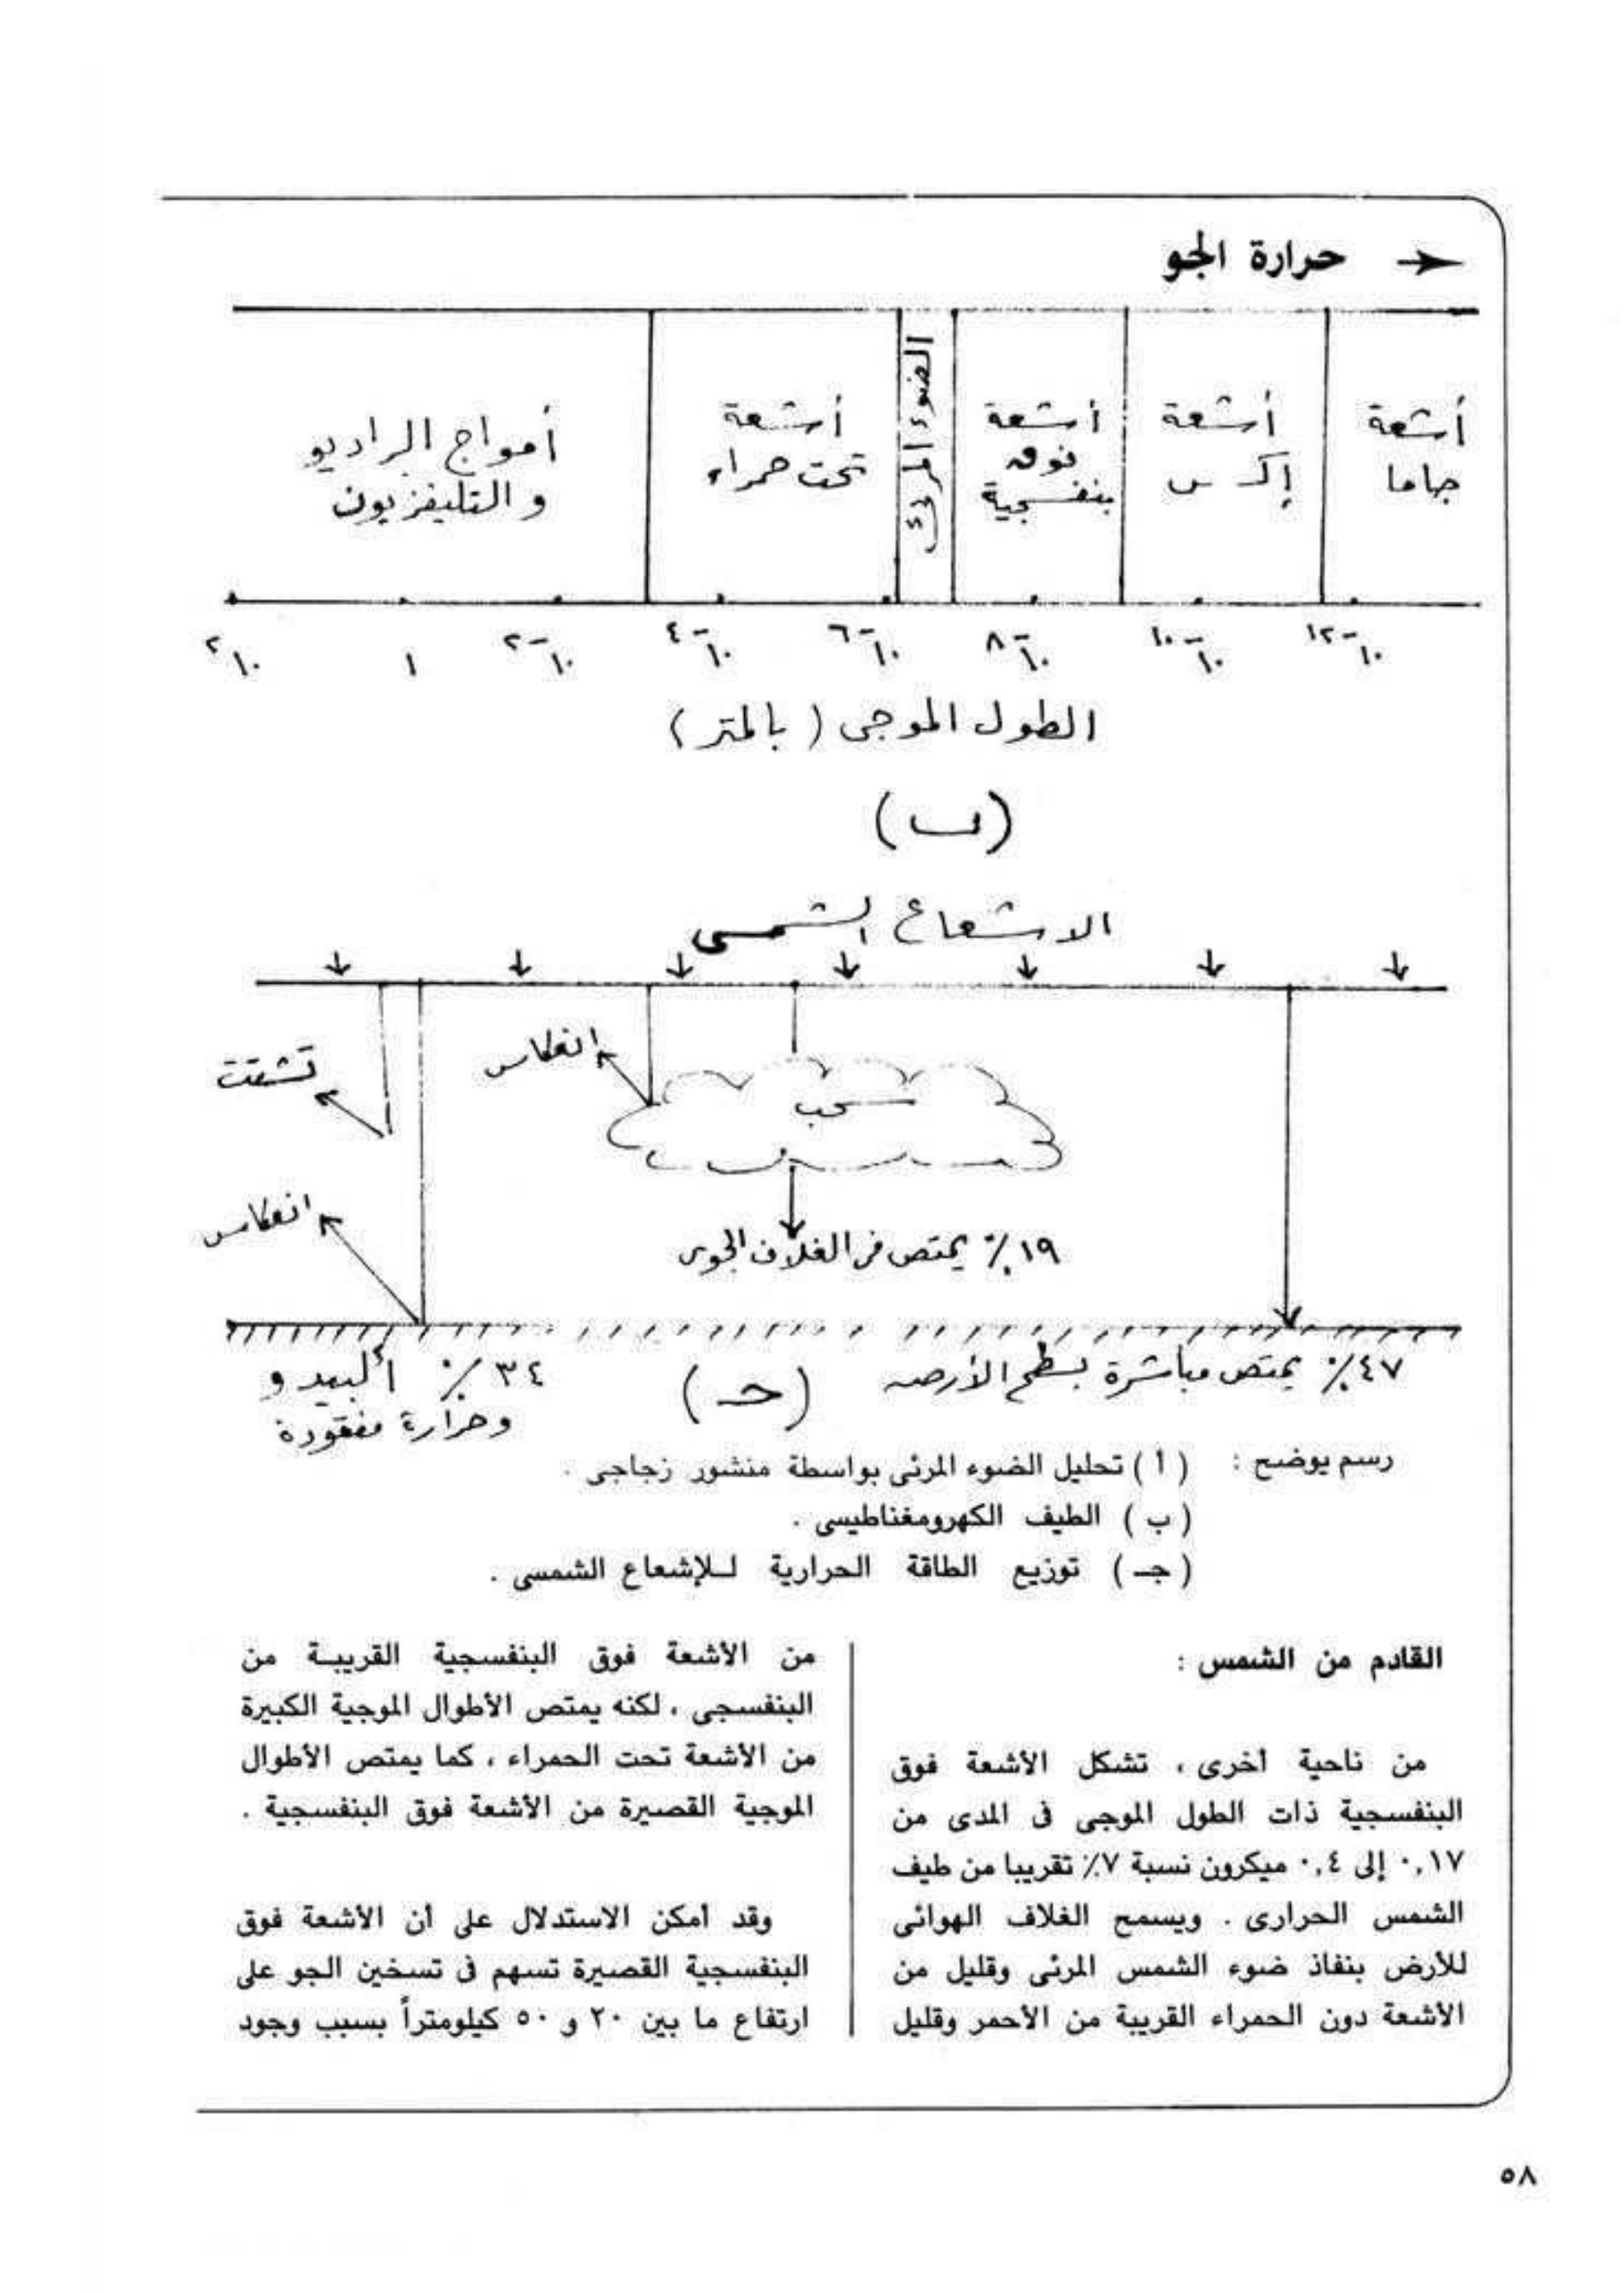 حرارة الجو
أشعة جاما
أشعة إكس
أشعة فوق بنفسجية
الضوء المرئى
أشعة تحت حمراء
أمواج الراديو والتليفزيون
١٠-١٢ ١٠-١٠ ١٠-٨ ١٠-٦ ١٠-٤ ١٠-٢ ١ ١٠٢
الطول الموجى ( بالمتر )
( ب )
الاشعاع الشمسى
انعكاس
تشتت
سحب
انعكاس
١٩٪ يمتص فى الغلاف الجوى
٤٧٪ يمتص مباشرة بسطح الأرض
( جـ )
٣٤٪ ألبيدو
وحرارة مفقودة
رسم يوضح : ( أ ) تحليل الضوء المرئى بواسطة منشور زجاجى .
( ب ) الطيف الكهرومغناطيسى .
( جـ ) توزيع الطاقة الحرارية للإشعاع الشمسى .
القادم من الشمس :
من ناحية أخرى ، تشكل الأشعة فوق
البنفسجية ذات الطول الموجى فى المدى من
٠,١٧ إلى ٠,٤ ميكرون نسبة ٧٪ تقريبا من طيف
الشمس الحرارى . ويسمح الغلاف الهوائى
للأرض بنفاذ ضوء الشمس المرئى وقليل من
الأشعة دون الحمراء القريبة من الأحمر وقليل
من الأشعة فوق البنفسجية القريبة من
البنفسجى ، لكنه يمتص الأطوال الموجية الكبيرة
من الأشعة تحت الحمراء ، كما يمتص الأطوال
الموجية القصيرة من الأشعة فوق البنفسجية .
وقد أمكن الاستدلال على أن الأشعة فوق
البنفسجية القصيرة تسهم فى تسخين الجو على
ارتفاع ما بين ٢٠ و ٥٠ كيلومتراً بسبب وجود
٥٨